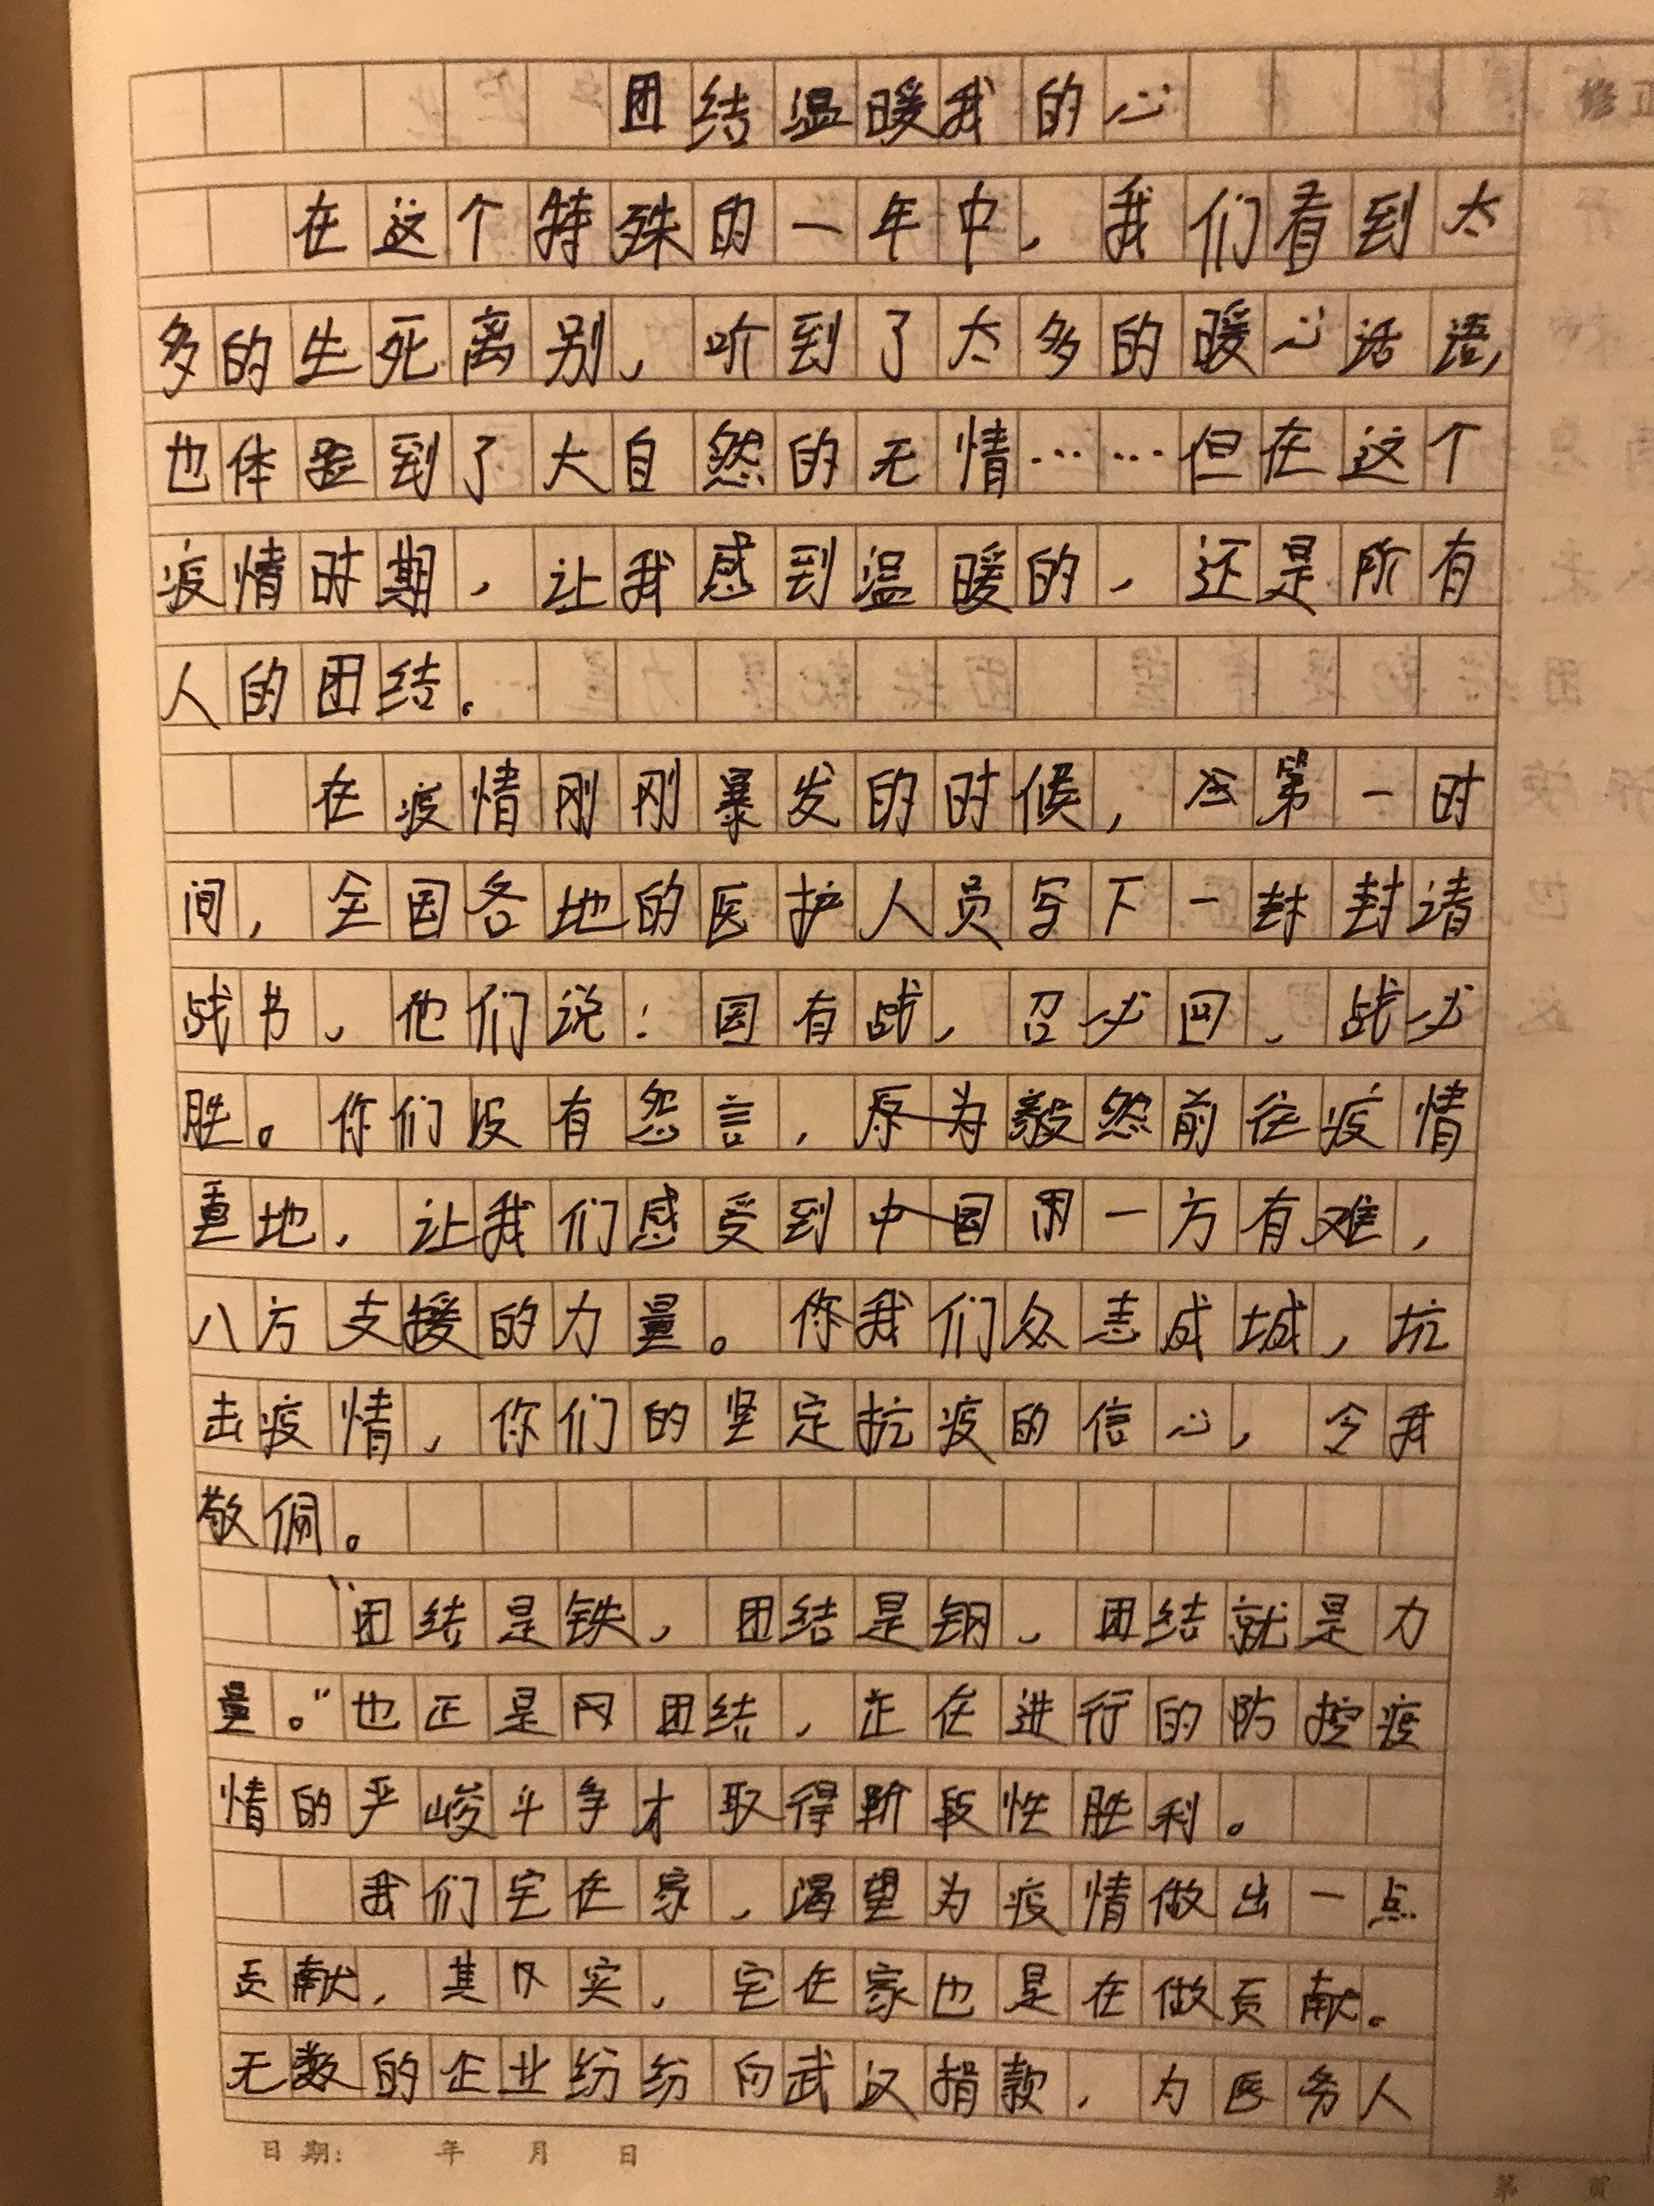 团结温暖我的心
在这个特殊的一年中，我们看到太
多的生死离别，听到了太多的暖心话语，
也体验到了大自然的无情……但在这个
疫情时期，让我感到温暖的，还是所有
人的团结。
在疫情刚刚暴发的时候，在第一时
间，全国各地的医护人员写下一封封请
战书，他们说：国有战，召必回，战必
胜。你们没有怨言，毅然前往疫情
重地，让我们感受到中国一方有难，
八方支援的力量。你我们众志成城，抗
击疫情，你们的坚定抗疫的信心，令我
敬佩。
“团结是铁，团结是钢，团结就是力
量。”也正是因团结，正在进行的防控疫
情的严峻斗争才取得阶段性胜利。
我们宅在家，渴望为疫情做出一点
贡献，其实，宅在家也是在做贡献。
无数的企业纷纷向武汉捐款，为医务人
日期： 年 月 日
第 页
修正